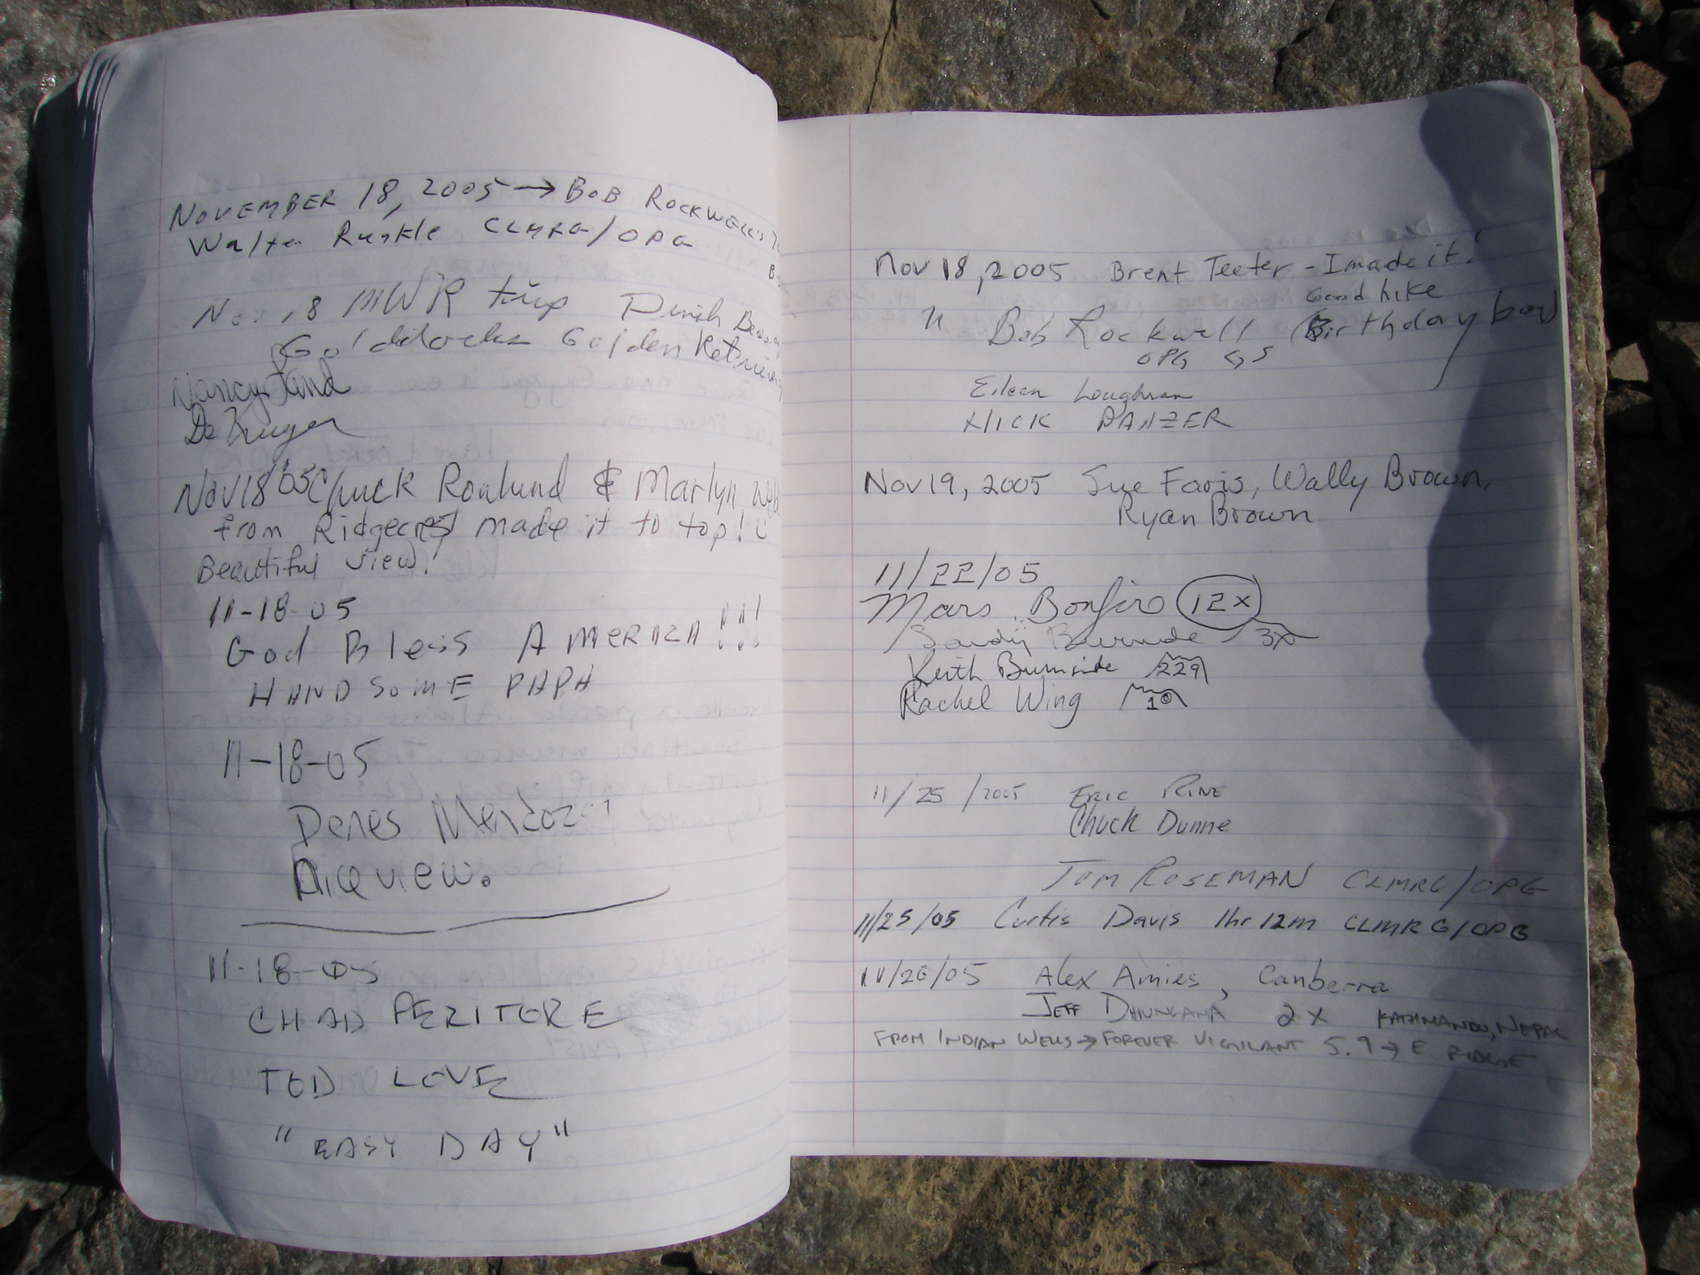 NOVEMBER 18, 2005 → BOB ROCKWELL'S
Walter CLMRG/OPG
B
Nov 18 MWR trip
Goldilocks Golden Retriever
Nancy
De Kruger
Nov 18 '05 Chuck Ronlund & Marlyn
from Ridgecrest made it to top!
Beautiful view!
11-18-05
God Bless AMERICA!!!
HANDSOME PAPA
11-18-05
Denes Mendoza
Nice view.
11-18-05
CHAD PERITORE
TED LOVE
"EASY DAY"
Nov 18, 2005 Brent Teeter - I made it!
Good hike
" Bob Rockwell (Birthday boy)
OPG GS
Eileen Loughman
NICK PANZER
Nov 19, 2005 Sue Faris, Wally Brown,
Ryan Brown
11/22/05
Mars Bonfire 12x
Sandy Burnside 3x
Keith Burnside 229
Rachel Wing 10
11/25/2005 ERIC RINE
Chuck Dunne
TOM ROSEMAN CLMRG/OPG
11/25/05 Curtis Davis 1hr 12m CLMRG/OPG
11/26/05 Alex Amies, Canberra
JEFF DHUNGANA 2x KATHMANDU, NEPAL
FROM INDIAN WELLS → FOREVER VIGILANT 5.9 → E RIDGE